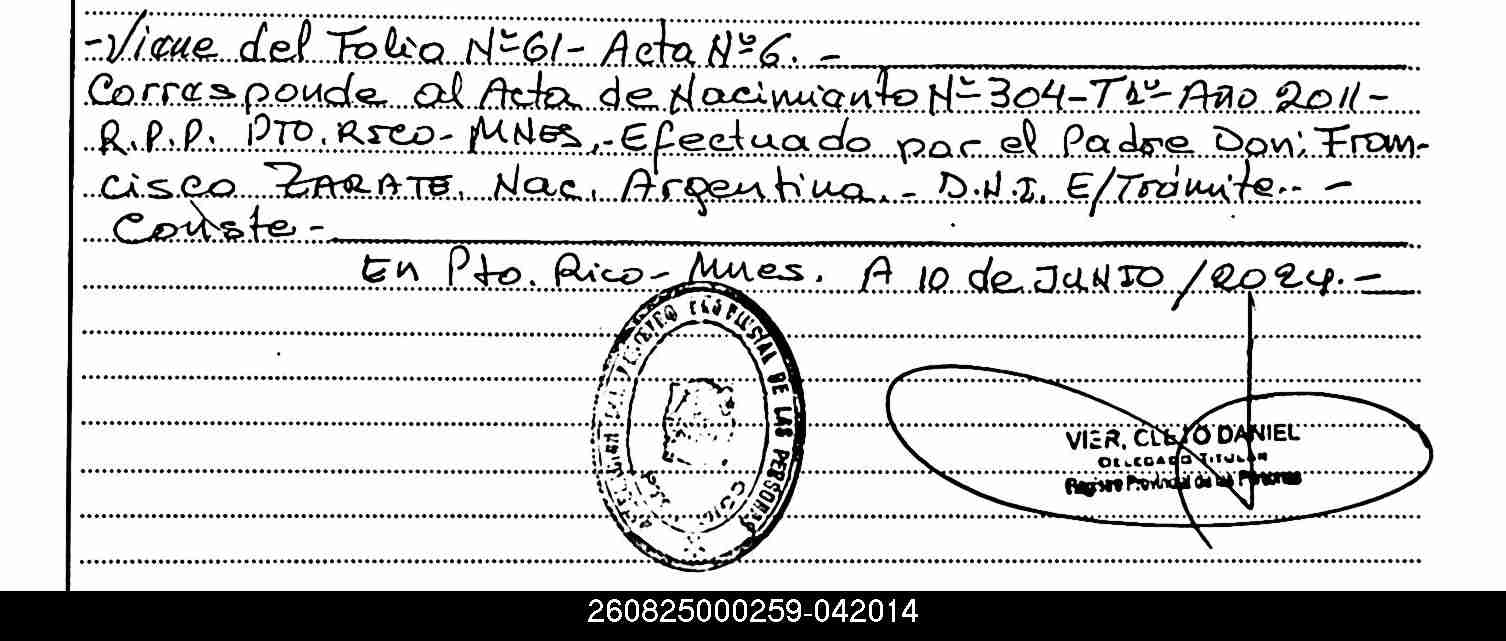 -Viene del Folio Nº 61- Acta Nº 6. -
Corresponde al Acta de Nacimiento Nº 304-T1º- Año 2011-
R.P.P. PTO. RICO- MNES.-Efectuado por el Padre Don: Fran-
cisco ZARATE. Nac. Argentina.- D.N.I. E/Trámite.. -
Conste -
En Pto. Rico- Mnes. A 10 de JUNIO /2024.-
PROVINCIAL DE LAS PERSONAS
VIER, CLETO DANIEL
DELEGADO TITULAR
Registro Provincial de las Personas
260825000259-042014